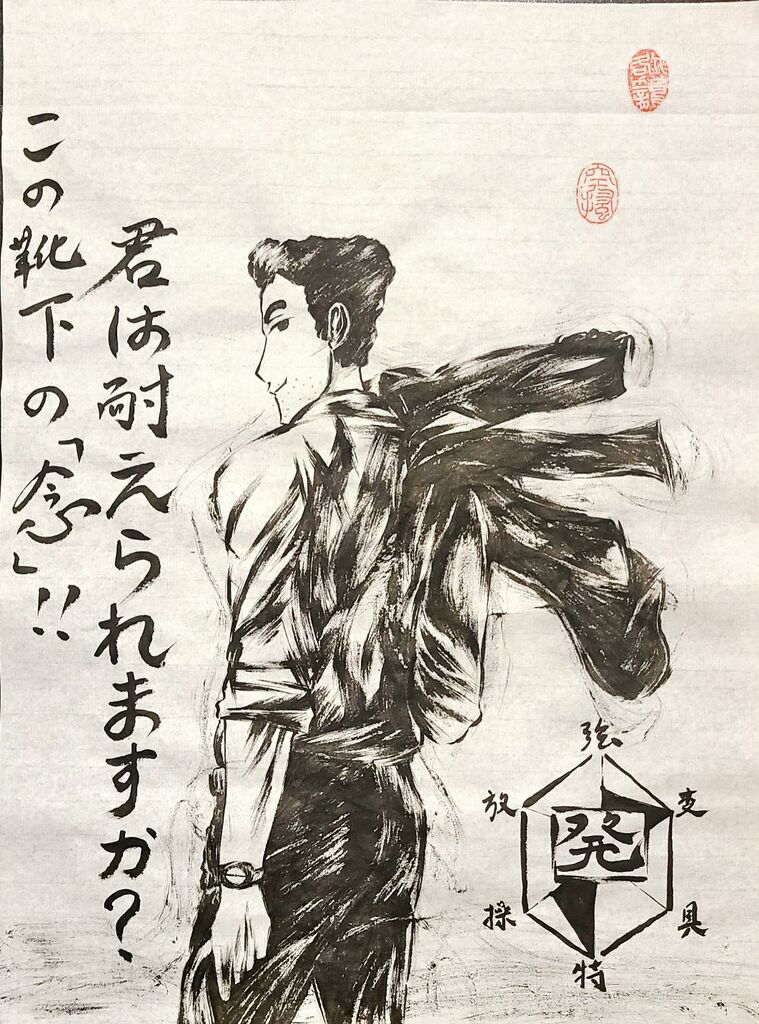 君は耐えられますか?
この靴下の「念」!!
強
変
放
発
具
操
特